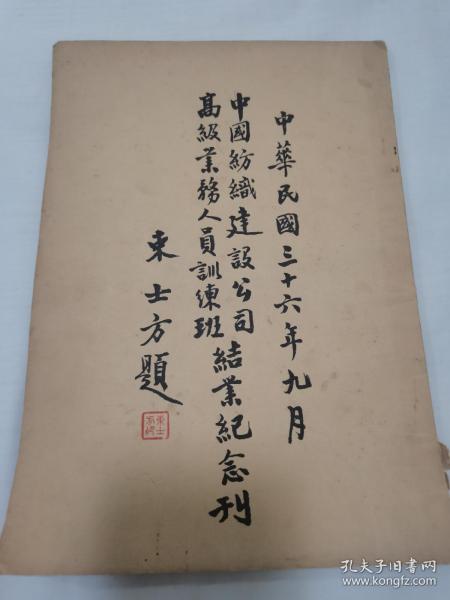 中華民國三十六年九月
中國紡織建設公司
高級業務人員訓練班
結業紀念刊
束士方題
孔夫子旧书网
www.kongfz.com